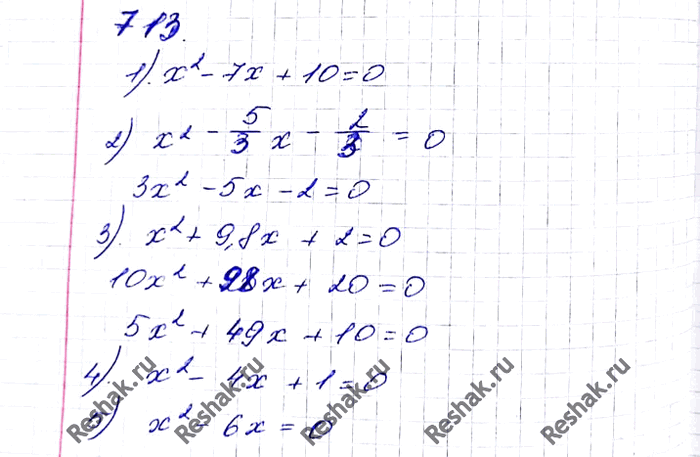 713.
1). x² - 7x + 10 = 0
2) x² - 5/3 x - 2/3 = 0
3x² - 5x - 2 = 0
3). x² + 9,8x + 2 = 0
10x² + 98x + 20 = 0
5x² + 49x + 10 = 0
4). x² - 4x + 1 = 0
5) x² - 6x = 0
Reshak.ru Reshak.ru Reshak.ru Reshak.ru Reshak.ru